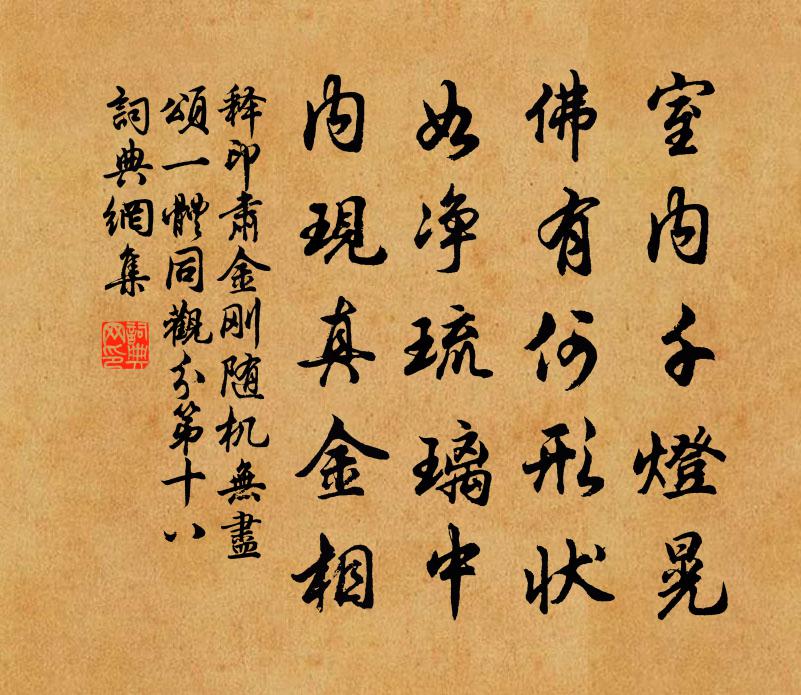 室内千燈晃
佛有何形状
如净琉璃中
内現真金相
释印肅金刚随机無盡
頌一體同觀分第十八
詞典網集
詞典网印